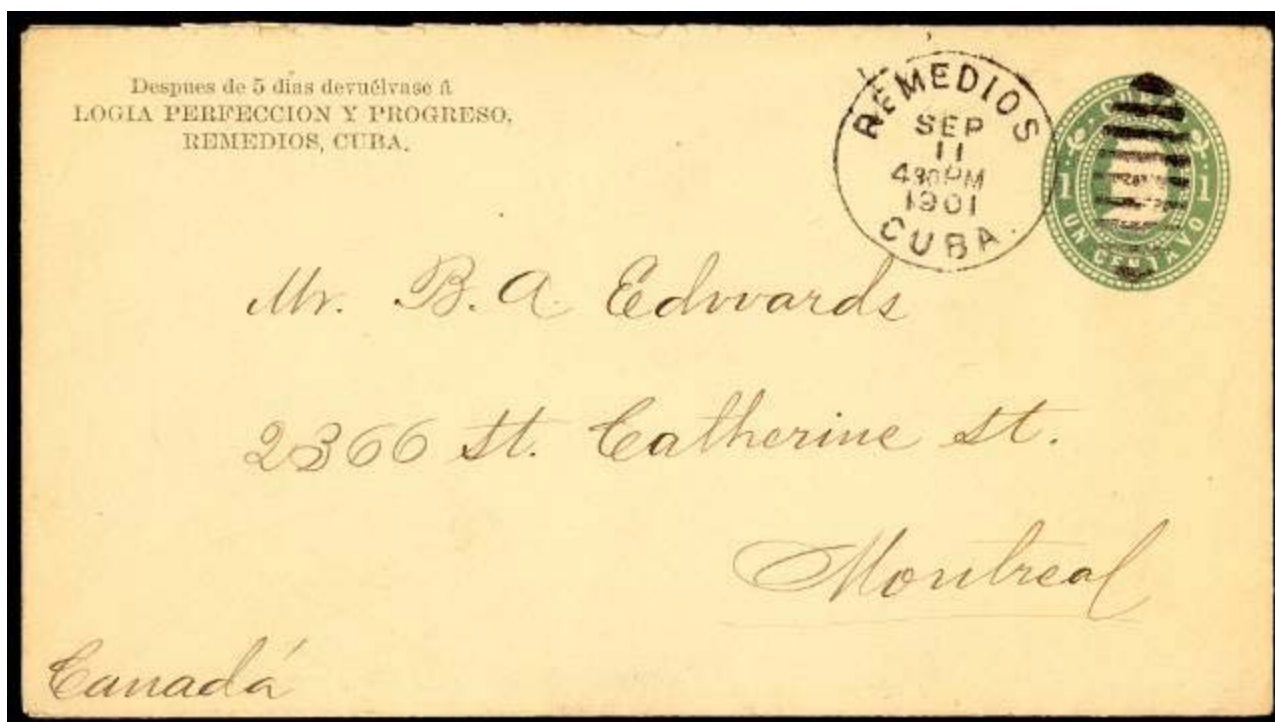 Despues de 5 días devuélvase á
LOGIA PERFECCION Y PROGRESO,
REMEDIOS, CUBA.
REMEDIOS
SEP
11
430PM
1901
CUBA.
1 1
UN CENTAVO
Mr. B. A. Edwards
2366 St. Catherine St.
Montreal
Canadá